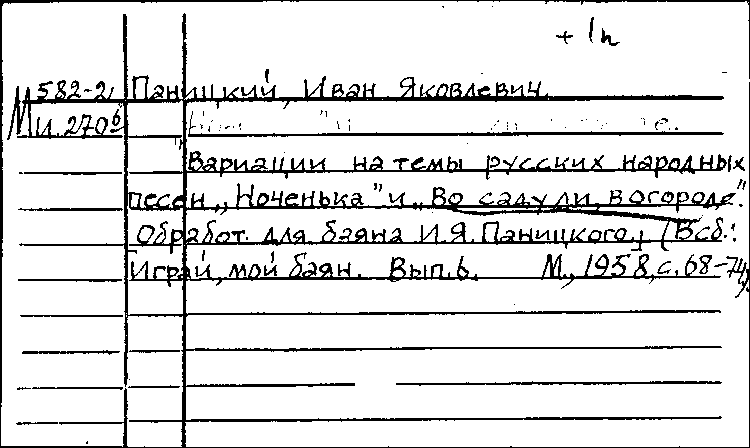 + 1 n
М 582-2 Паницкий, Иван Яковлевич.
И. 270б
"Вариации на темы русских народных
песен „Ноченька" и „Во саду ли, в огороде".
[Обработ. для баяна И.Я. Паницкого] (В сб.:
Играй, мой баян. Вып. 6. М., 1958, с. 68-74).